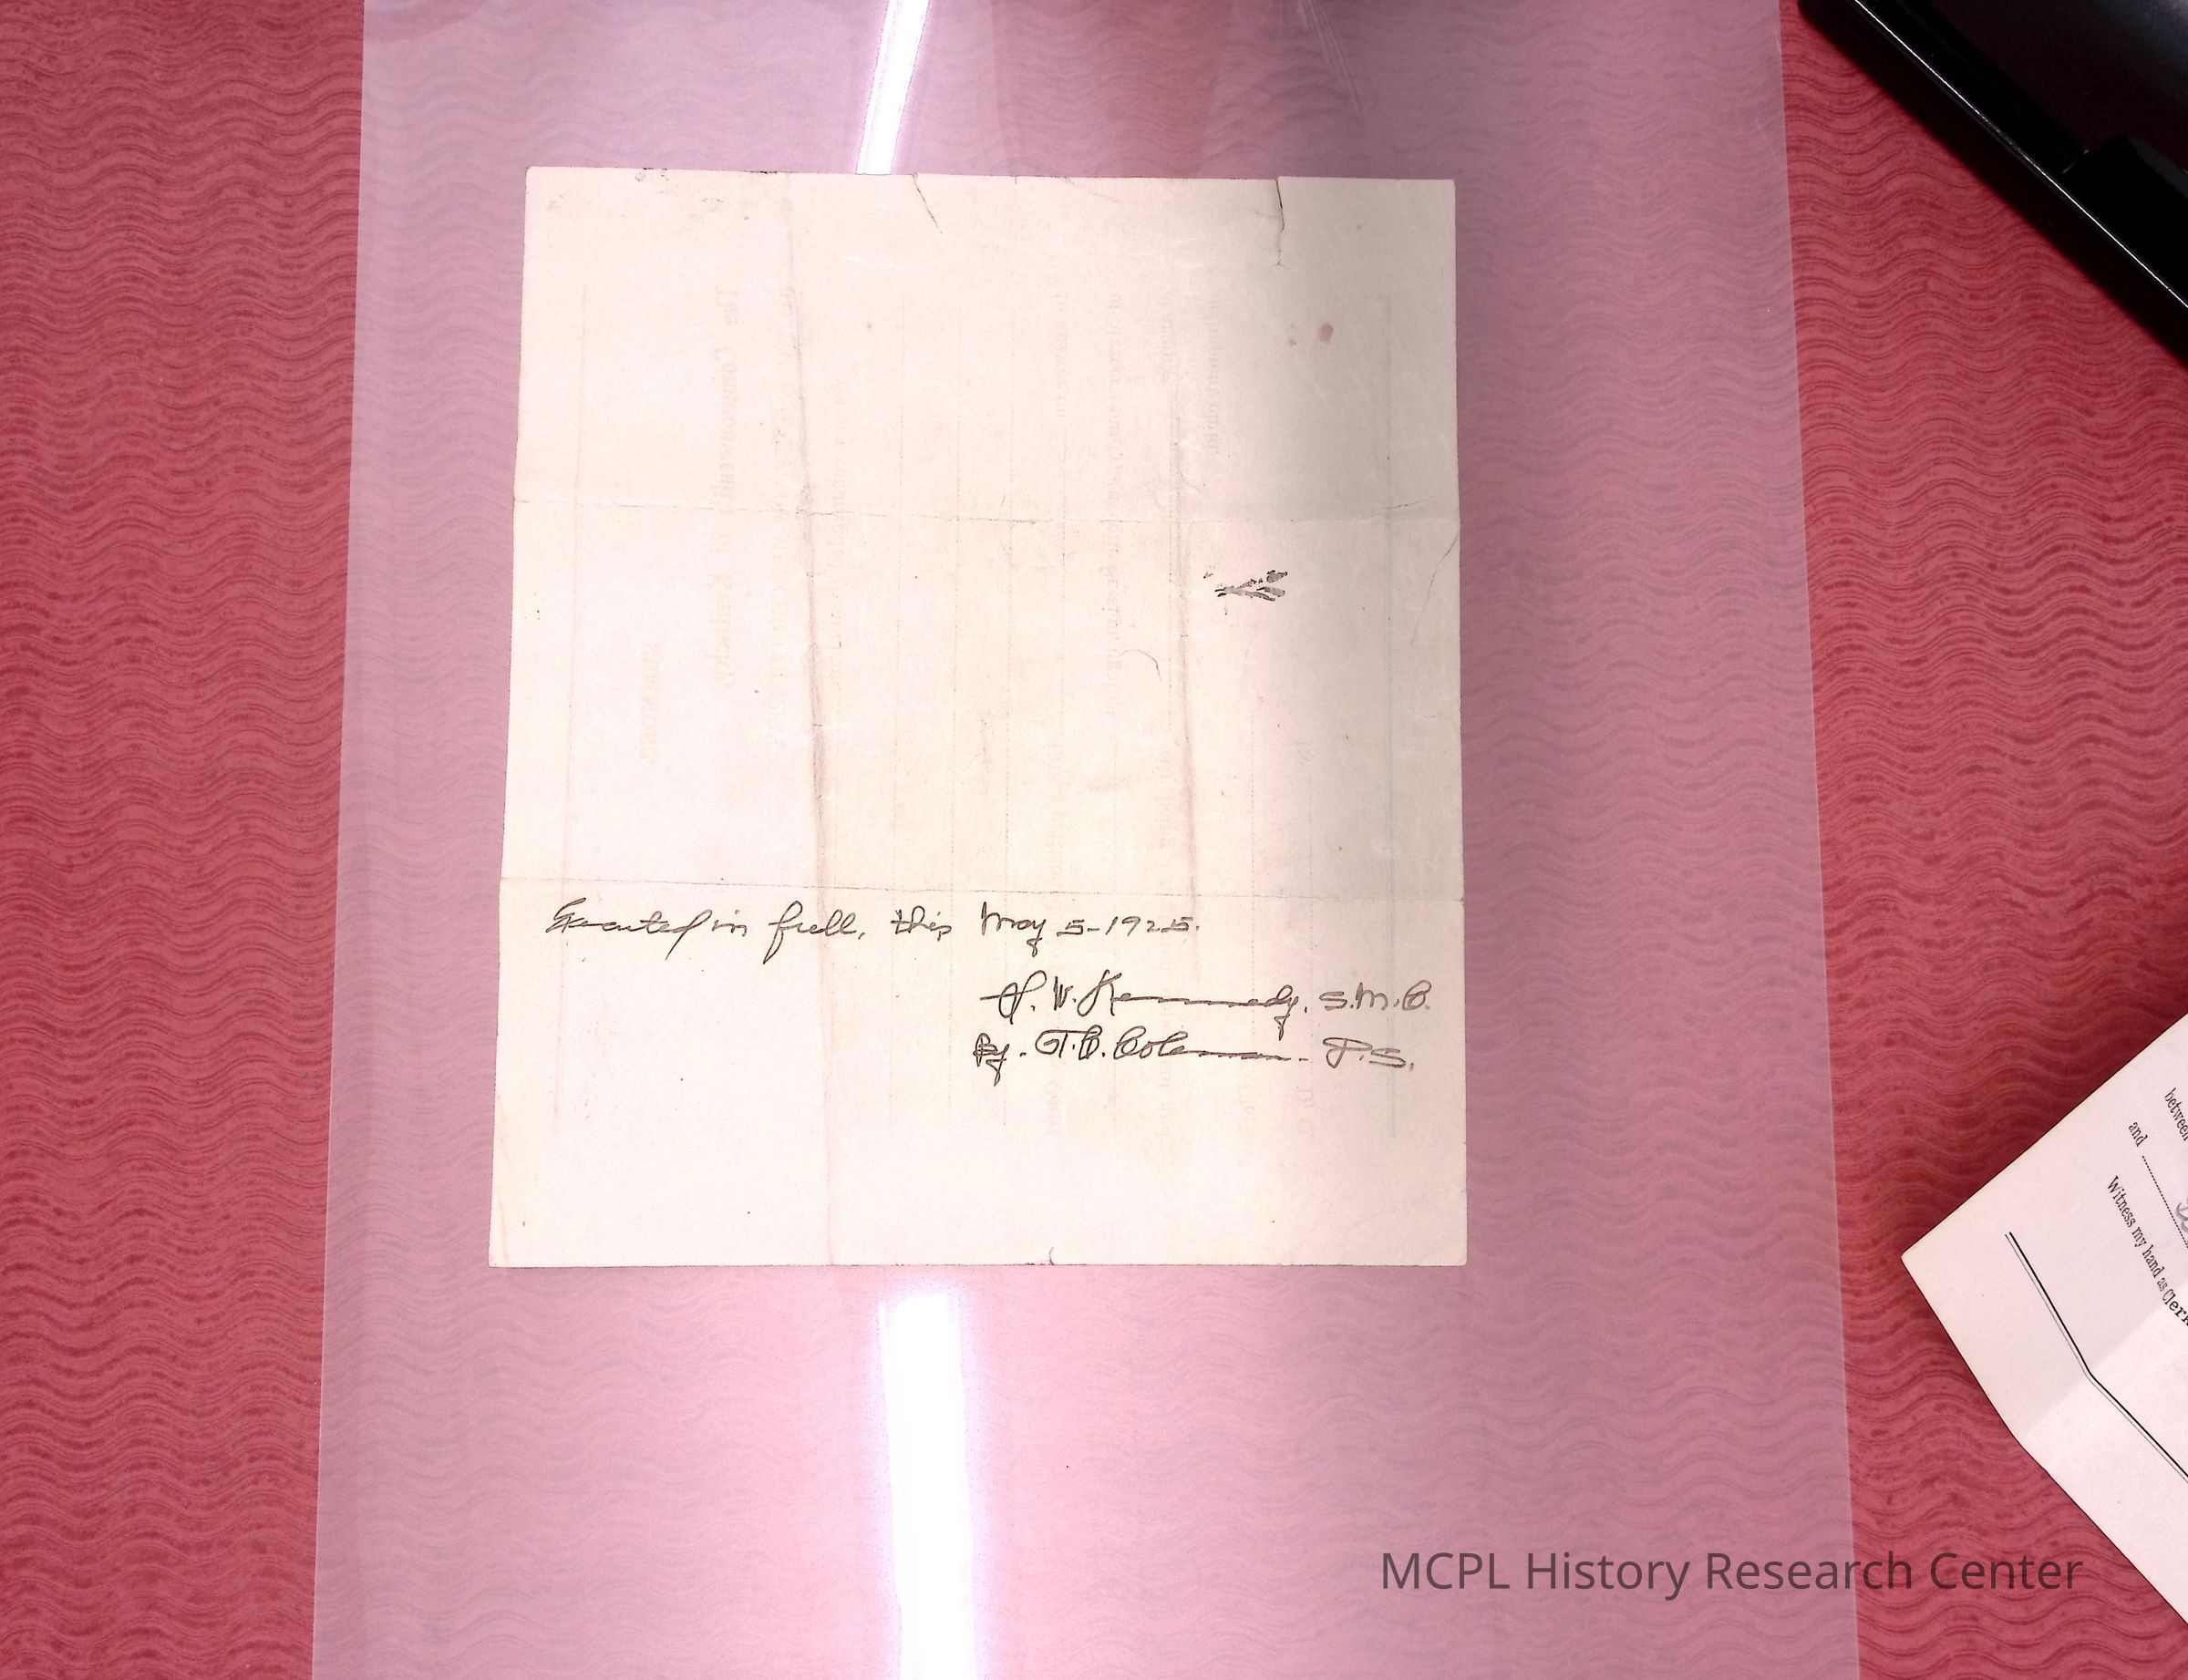 Executed in full, this May 5-1925.
H. W. Kennedy, S.M.C.
By. T.B. Coleman. D.S.
between
and
Witness my hand as Clerk
MCPL History Research Center